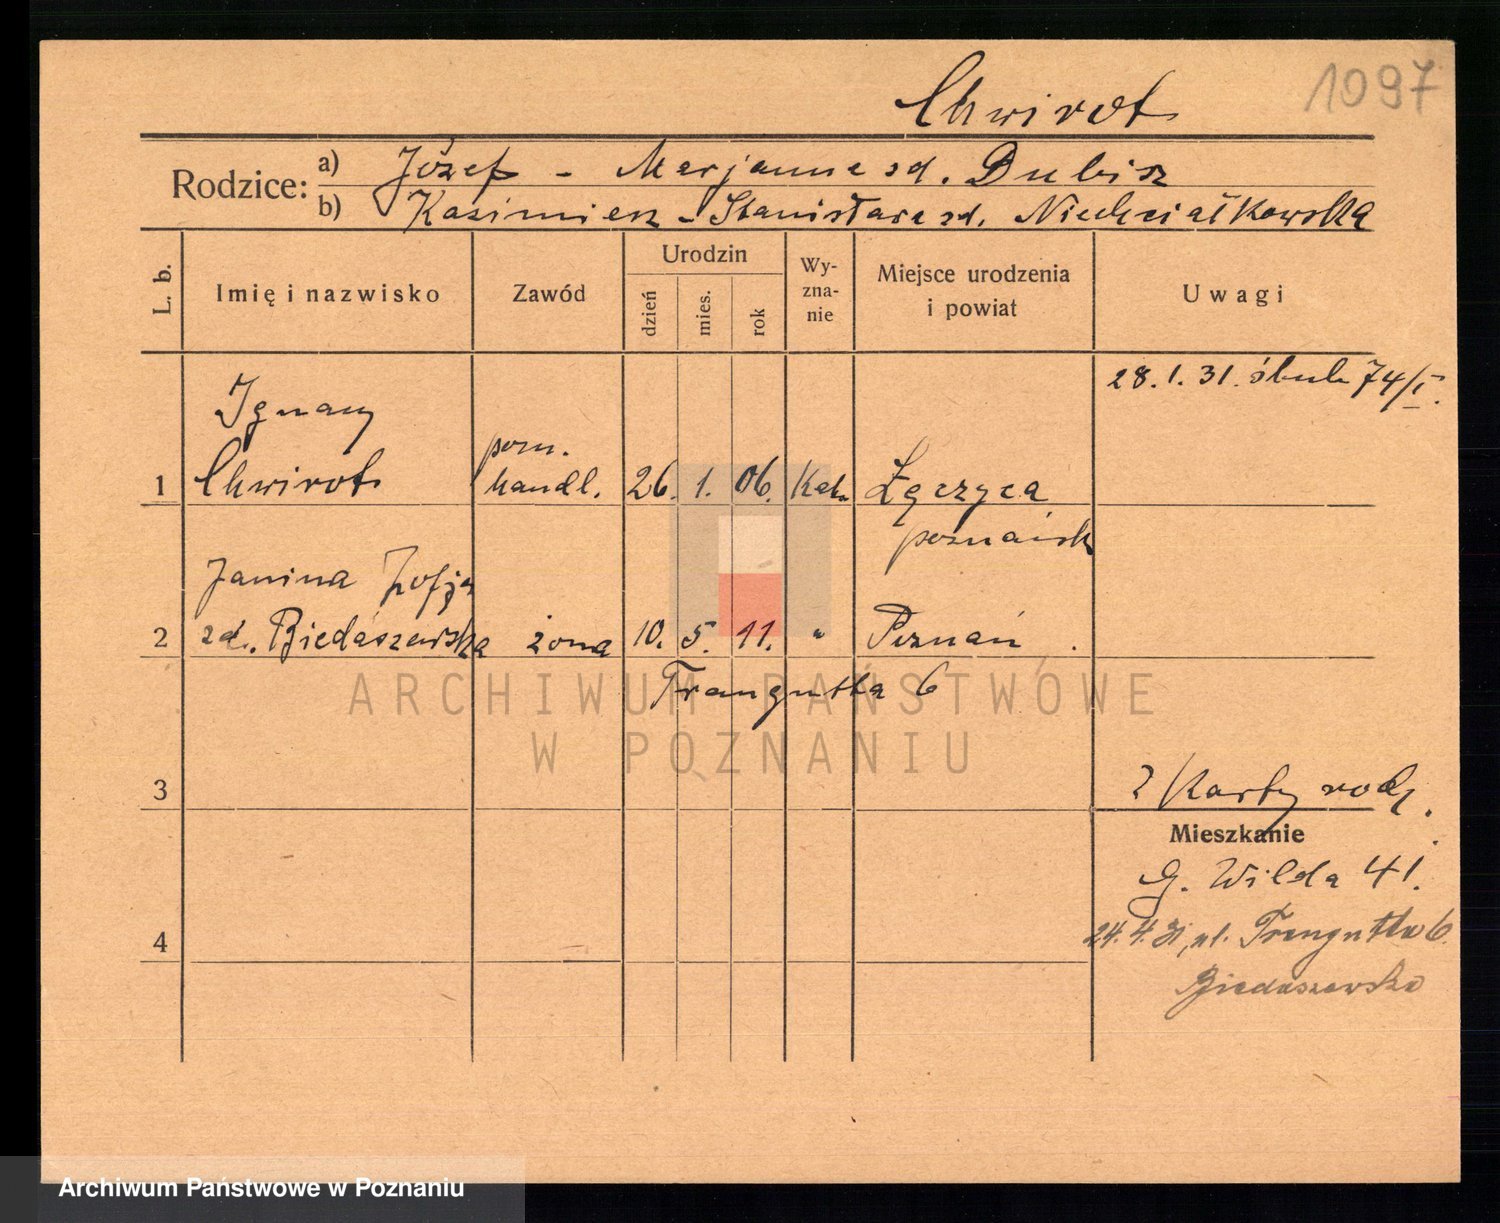 1097
Chwirot
Rodzice: a) Józef - Marjanna zd. Dubisz
b) Kazimierz - Stanisława zd. Niedziałkowska
L. b.
Imię i nazwisko
Zawód
Urodzin
dzień
mies.
rok
Wy-
zna-
nie
Miejsce urodzenia
i powiat
Uwagi
28.1.31. ślub 74/I.
Ignacy
1 Chwirot pom. handl. 26. 1. 06. Kat. Łęczyca
poznańsk
Janina Zofja
2 zd. Biedaszewska żona 10. 5. 11. " Poznań.
Traugutta 6
ARCHIWUM PAŃSTWOWE
W POZNANIU
3
2 Karty rodz.
Mieszkanie
G. Wilda 41.
24.4.31, ul. Traugutta 6.
4
Biedaszewska
Archiwum Państwowe w Poznaniu